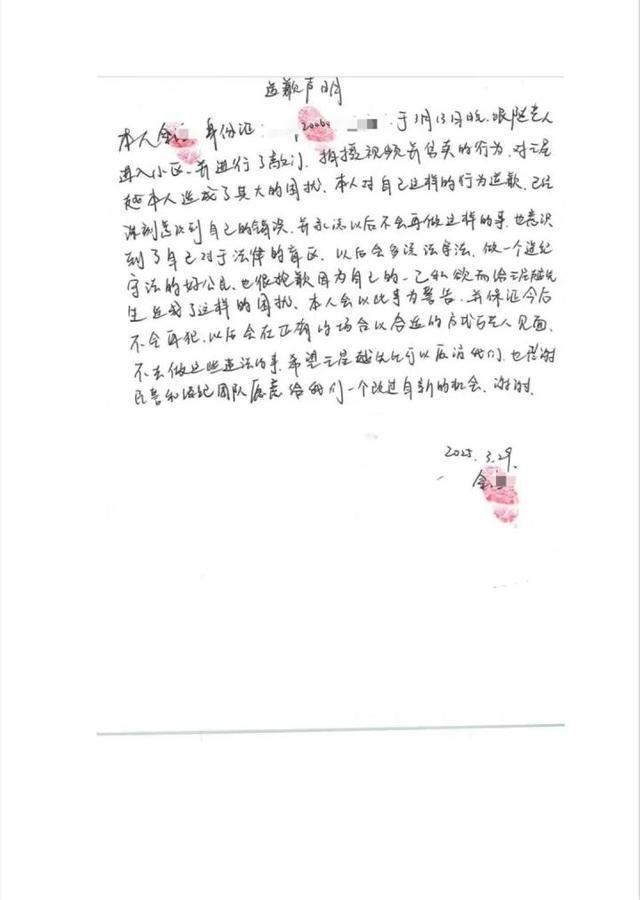 道歉声明
本人金 身份证: 20060 ,于3月13日晚,跟随艺人
进入小区,并进行了敲门,拍摄视频并售卖的行为,对王星
越本人造成了莫大的困扰。本人对自己这样的行为道歉,已经
深刻意识到自己的错误,并永远以后不会再做这样的事,也意识
到了自己对于法律的盲区。以后会多读法守法,做一个遵纪
守法的好公民,也很抱歉因为自己的一己私欲而给王星越先
生造成了这样的困扰。本人会以此事为警告,并保证今后
不会再犯,以后会在正有的场合以合适的方式与艺人见面,
不去做这些违法的事,希望王星越先生可以原谅我们,也感谢
民警和法务团队愿意给我们一个改过自新的机会,谢谢.
2025.3.29.
金